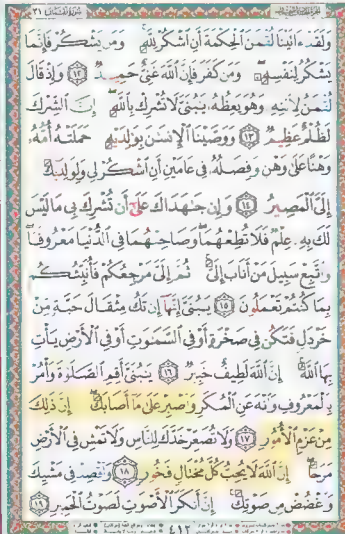 سورة لقمان ٣١
ولقد ءاتينا لقمن الحكمة أن اشكر لله ومن يشكر فإنما
يشكر لنفسه ومن كفر فإن الله غني حميد ١٢ وإذ قال
لقمن لابنه وهو يعظه يبني لا تشرك بالله إن الشرك
لظلم عظيم ١٣ ووصينا الإنسن بولديه حملته أمه
وهنا على وهن وفصله في عامين أن اشكر لي ولولديك
إلي المصير ١٤ وإن جهداك على أن تشرك بي ما ليس
لك به علم فلا تطعهما وصاحبهما في الدنيا معروفا
واتبع سبيل من أناب إلي ثم إلي مرجعكم فأنبئكم
بما كنتم تعملون ١٥ يبني إنها إن تك مثقال حبة من
خردل فتكن في صخرة أو في السموت أو في الأرض يأت
بها الله إن الله لطيف خبير ١٦ يبني أقم الصلوة وأمر
بالمعروف وانه عن المنكر واصبر على ما أصابك إن ذلك
من عزم الأمور ١٧ ولا تصعر خدك للناس ولا تمش في الأرض
مرحا إن الله لا يحب كل مختال فخور ١٨ واقصد في مشيك
واغضض من صوتك إن أنكر الأصوت لصوت الحمير ١٩
٤١٢